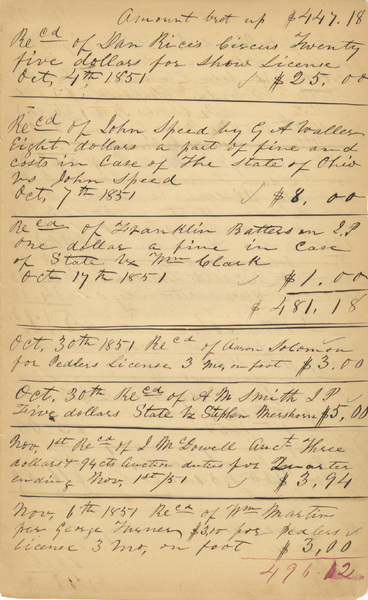 Amount brot up $447.18
Recd of Dan Rices Circus Twenty
five dollars for Show License
Oct, 4th 1851 $25.00
Recd of John Speed by G A Waller
Eight dollars a part of fine and
costs in Case of The State of Ohio
vs John Speed
Oct, 7th 1851 $8.00
Recd of Franklin Batterson J.P
one dollar a fine in Case
of State Vs Wm Clark
Oct 17th 1851 $1.00
$481.18
Oct, 30th 1851 Recd of Aaron Solomon
for Pedlers License 3 mo, on foot $3.00
Oct, 30th Recd of A M Smith J P
Five dollars State Vs Stephen Mershorn $5,00
Nov, 1st Recd of J McLowell Auct. Three
dollars & 94cts Auction duties for Quarter
ending Nov, 1st/51 $3,94
Nov, 6th 1851 Recd of Wm Martin
per George Turner $3,00 for pedlers
License 3 mo, on foot $3,00
496.12